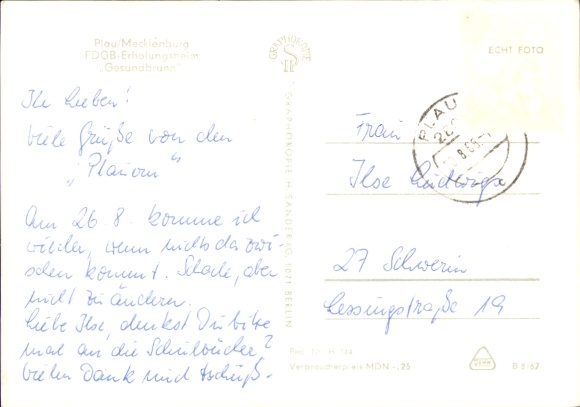 Plau/Mecklenburg
FDGB-Erholungsheim
„Gesundbrunn“
Ihr Lieben!
viele Grüße von den
„Plauern“
Am 26.8. komme ich
wieder, wenn nichts dazwi-
schen kommt. Schade, aber
nicht zu ändern.
Liebe Ilse, denkst Du bitte
mal an die Schulbücher?
Vielen Dank und tschüß.
GRAPHOKOPIE
GRAPHOKOPIE H. SANDER KG, 1071 BERLIN
ECHT FOTO
PLAU
Frau
Ilse Ludwigs
27 Schwerin
Lessingstraße 19
Verbraucherpreis MDN -,25
B 5/67